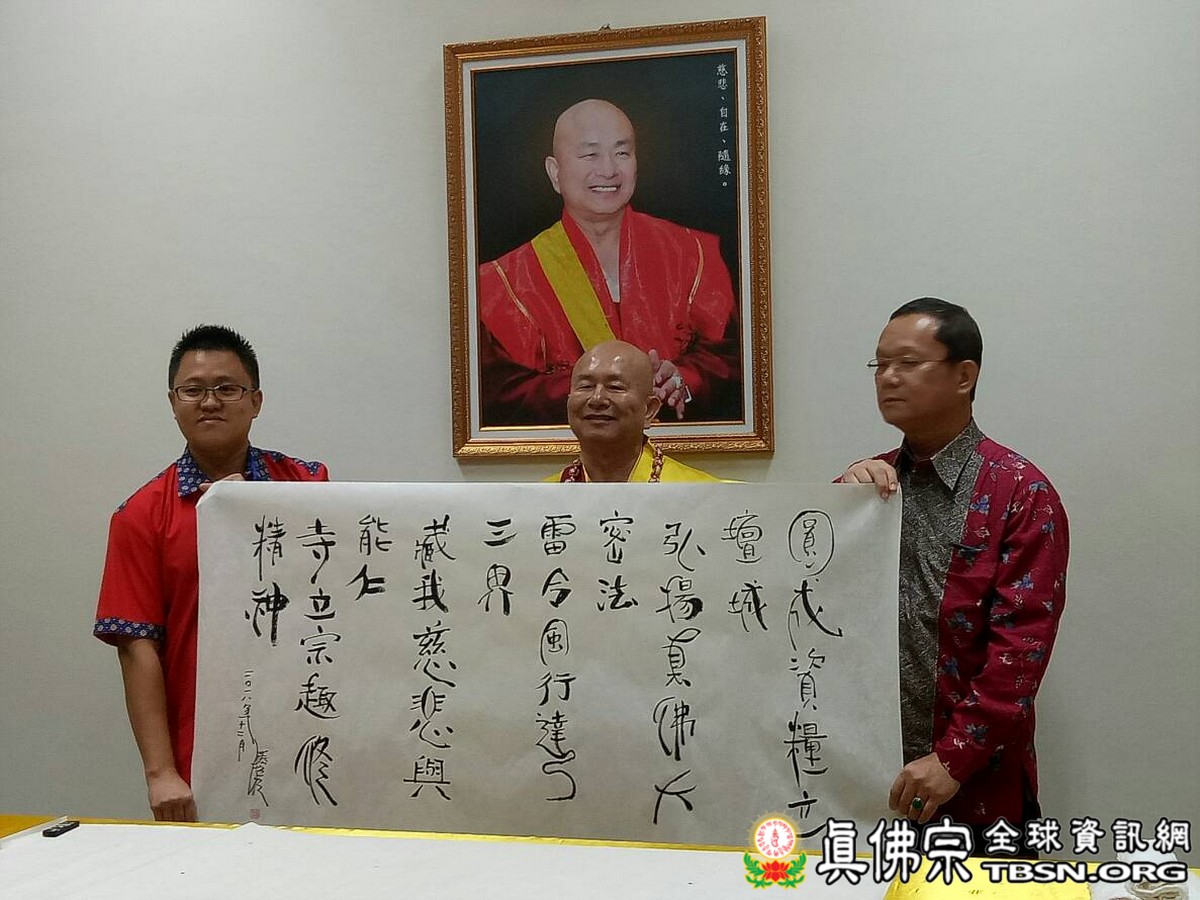 慈悲、自在、隨緣。
圓成資糧立
壇城
弘揚真佛大
密法
雷令風行達
三界
藏我慈悲與
能仁
寺立宗趣修
精神
二〇一八年十二月
眞佛宗全球資訊網
TBSN.ORG